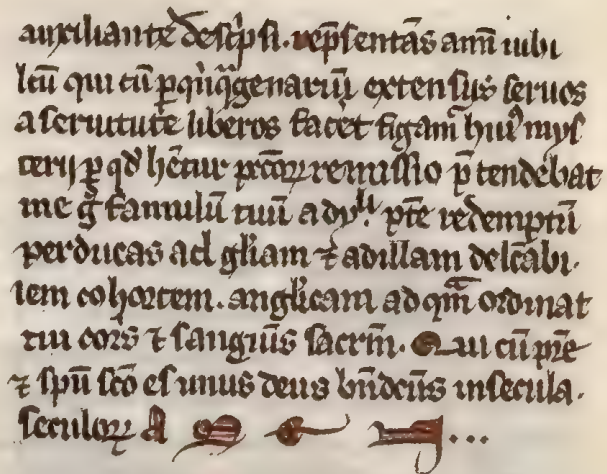 auxiliante descͥpsi. rep̄sentās ann̄ iubi
leū qui cū p̱q̇nq̄genariū extensus seruos
a seruitute liberos facēt figam̄ huiꝰ mys
terij ꝑ qd̄ hētur remissio p̄tendebat
me ḡ famulū tuū redemptū
perducas ad gl̄iam ⁊ ad illam
cohortem. anglicam ad qm̄ ordinat
tui cor̄s ⁊ sanguīs sacrm̄. Qui cū pr̄e
⁊ sp̄u sc̄o es unus deus bn̄dc̄us in secula.
seculoꝝ A M E N...